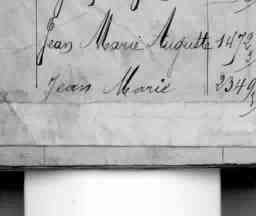 Jean Marie Auguste 1472
Jean Marie 2349